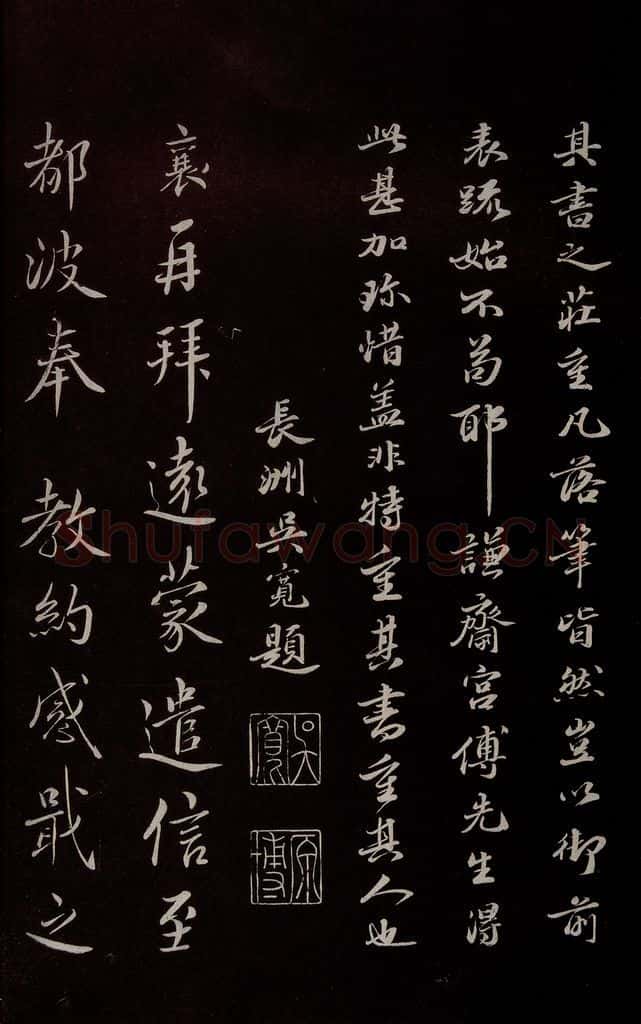 其書之莊重凡落筆皆然豈以御前
表疏始不苟耶謙齋宮傅先生得
此甚加珎惜盖非特重其書重其人也
長洲吳寬題
吳寬
原博
襄再拜遠蒙遣信至
都波奉教約感戢之
Shufawang.CN